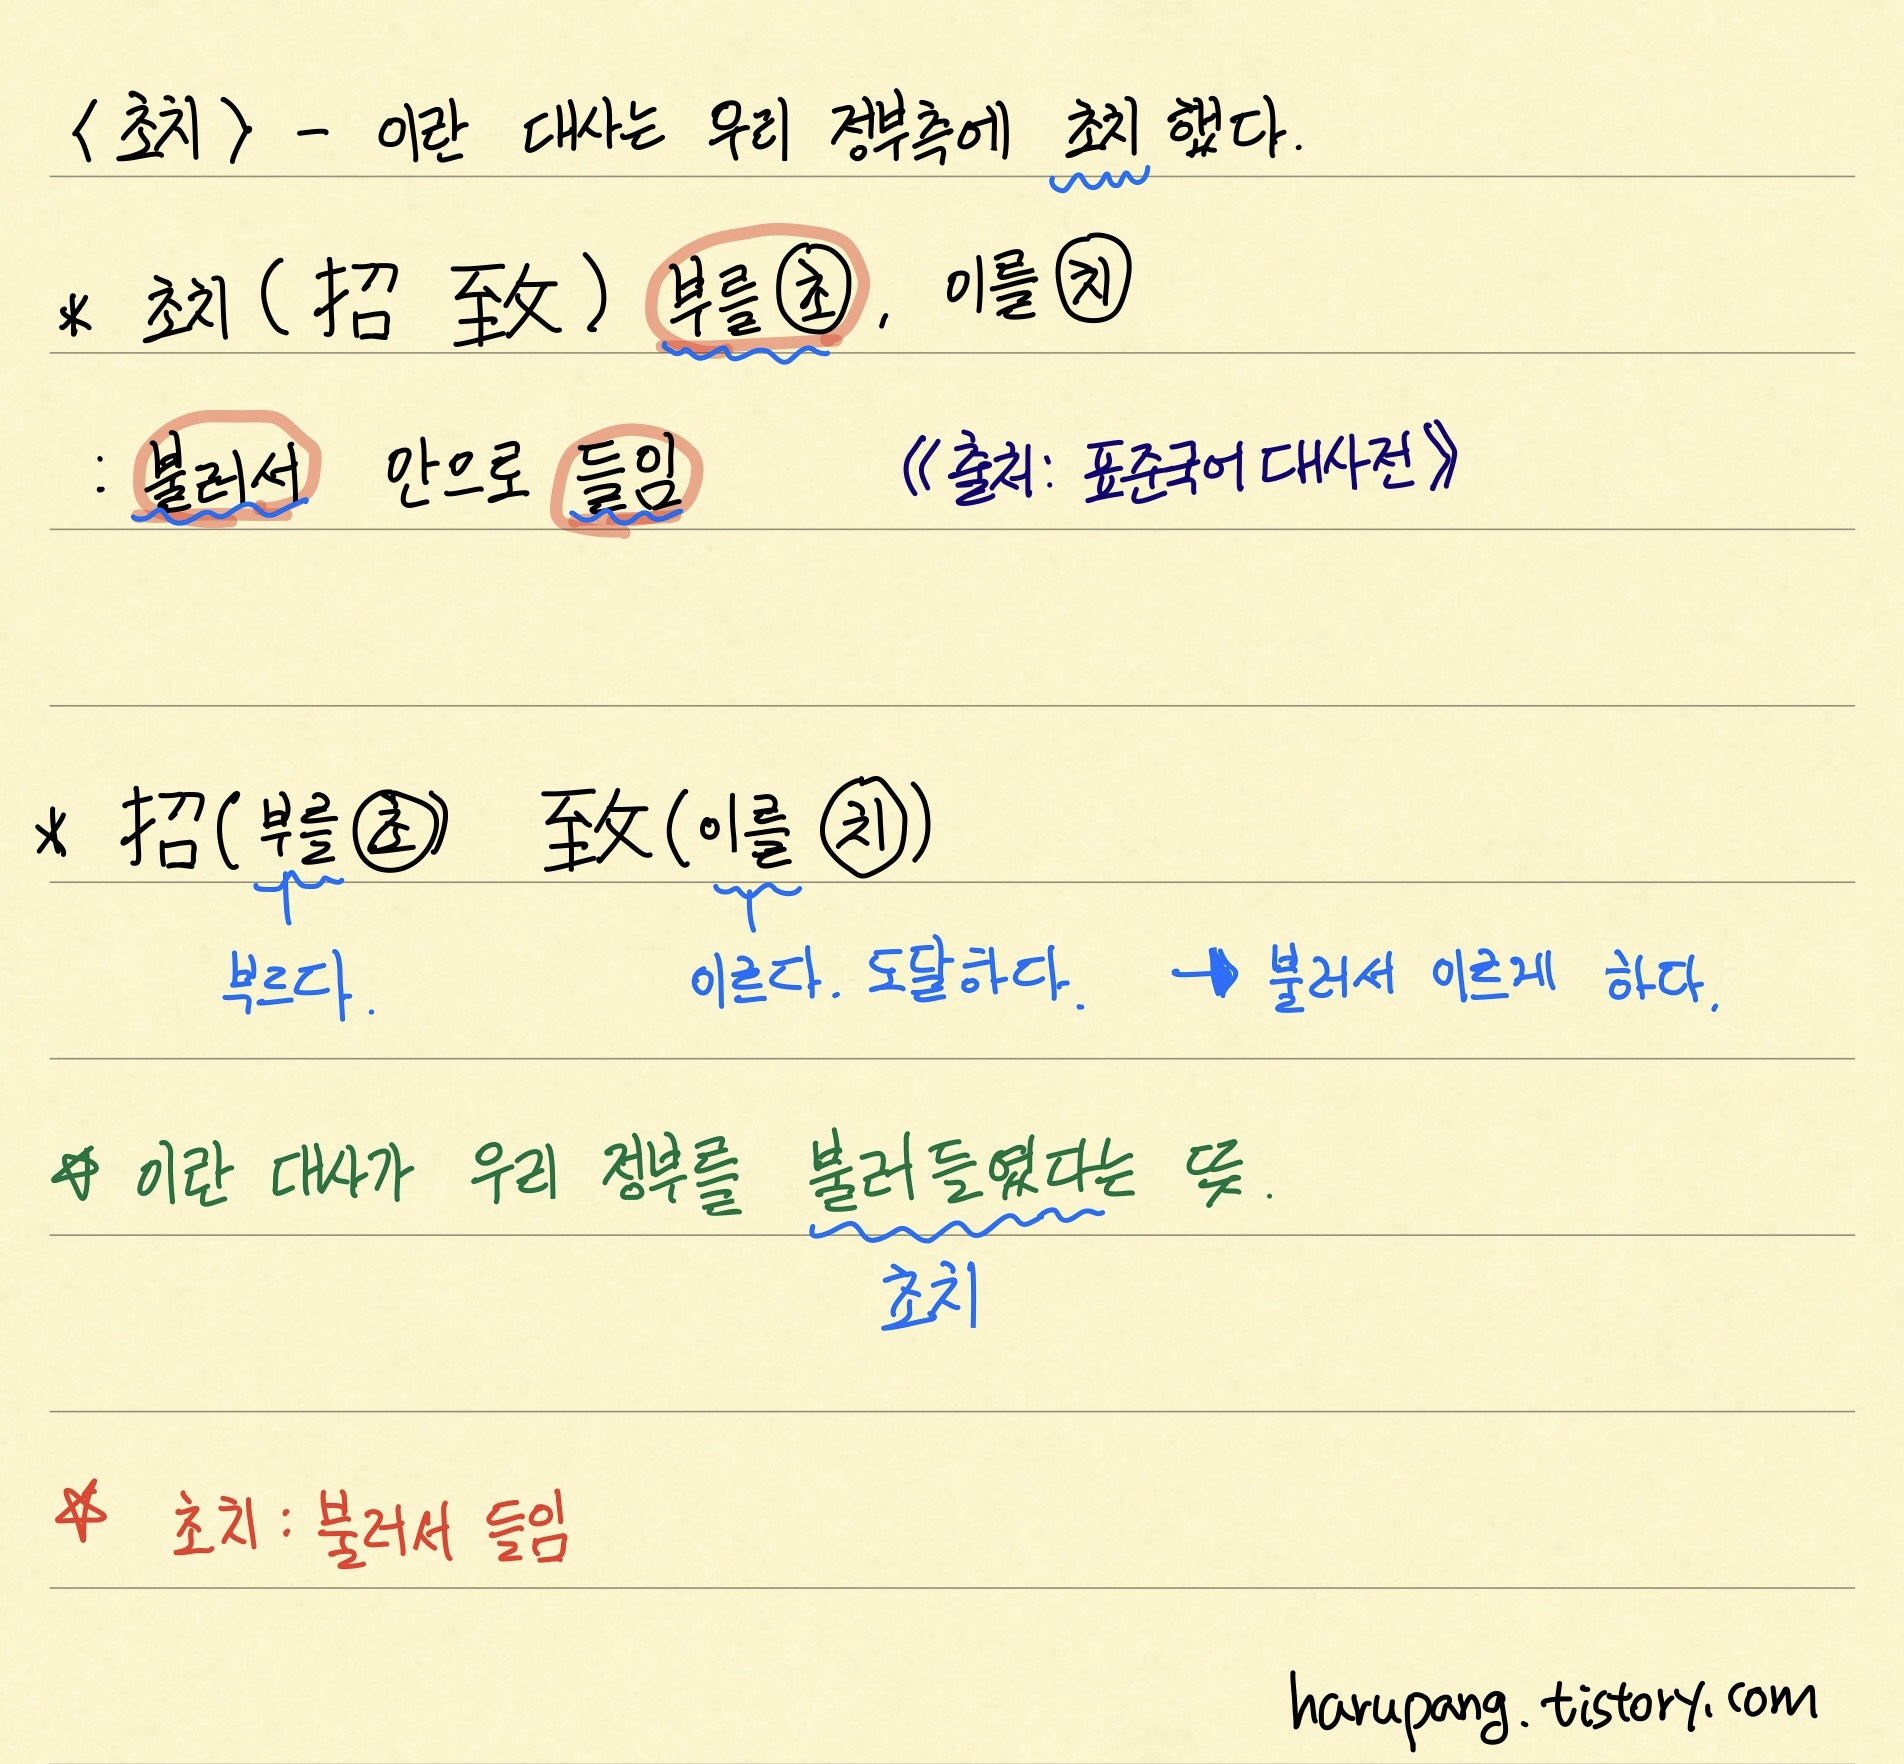 <초치> - 이란 대사는 우리 정부측에 초치 했다.
* 초치(招 致) 부를 초, 이를 치
: 불러서 안으로 들임 《출처: 표준국어대사전》
* 招(부를 초) 致(이를 치)
부르다. 이르다. 도달하다. → 불러서 이르게 하다.
☆ 이란 대사가 우리 정부를 불러들였다는 뜻.
초치
☆ 초치 : 불러서 들임
harupang.tistory.com